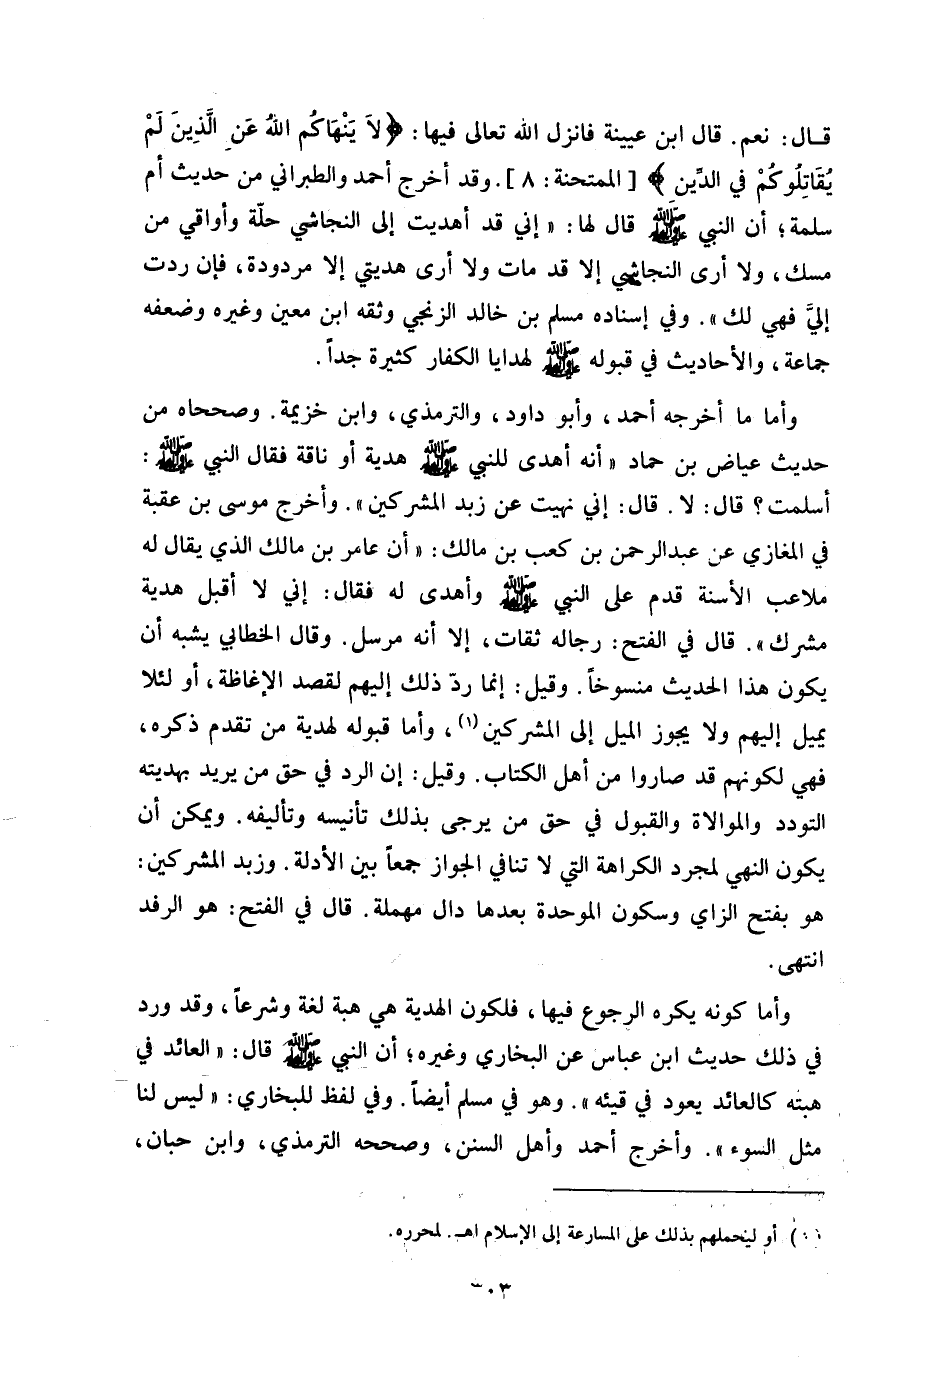 قـال: نعم. قال ابن عيينة فانزل الله تعالى فيها: ﴿لاَ يَنْهَاكُم اللهُ عَنِ الَّذِينَ لَمْ
يُقَاتِلُوكُمْ في الدِّينِ﴾ [الممتحنة: ٨]. وقد أخرج أحمد والطبراني من حديث أم
سلمة؛ أن النبي ﷺ قال لها: «إني قد أهديت إلى النجاشي حلّة وأواقي من
مسك، ولا أرى النجاشي إلا قد مات ولا أرى هديتي إلا مردودة، فإن ردت
إليَّ فهي لك». وفي إسناده مسلم بن خالد الزنجي وثقه ابن معين وغيره وضعفه
جماعة، والأحاديث في قبوله ﷺ لهدايا الكفار كثيرة جداً.
وأما ما أخرجه أحمد، وأبو داود، والترمذي، وابن خزيمة. وصححاه من
حديث عياض بن حماد «أنه أهدى للنبي ﷺ هدية أو ناقة فقال النبي ﷺ:
أسلمت؟ قال: لا. قال: إني نهيت عن زبد المشركين». وأخرج موسى بن عقبة
في المغازي عن عبدالرحمن بن كعب بن مالك: «أن عامر بن مالك الذي يقال له
ملاعب الأسنة قدم على النبي ﷺ وأهدى له فقال: إني لا أقبل هدية
مشرك». قال في الفتح: رجاله ثقات، إلا أنه مرسل. وقال الخطابي يشبه أن
يكون هذا الحديث منسوخاً. وقيل: إنما ردّ ذلك إليهم لقصد الإغاظة، أو لئلا
يميل إليهم ولا يجوز الميل إلى المشركين(١)، وأما قبوله لهدية من تقدم ذكره،
فهي لكونهم قد صاروا من أهل الكتاب. وقيل: إن الرد في حق من يريد بهديته
التودد والموالاة والقبول في حق من يرجى بذلك تأنيسه وتأليفه. ويمكن أن
يكون النهي لمجرد الكراهة التي لا تنافي الجواز جمعاً بين الأدلة. وزبد المشركين:
هو بفتح الزاي وسكون الموحدة بعدها دال مهملة. قال في الفتح: هو الرفد
انتهى.
وأما كونه يكره الرجوع فيها، فلكون الهدية هي هبة لغة وشرعاً، وقد ورد
في ذلك حديث ابن عباس عن البخاري وغيره؛ أن النبي ﷺ قال: «العائد في
هبته كالعائد يعود في قيئه». وهو في مسلم أيضاً. وفي لفظ للبخاري: «ليس لنا
مثل السوء». وأخرج أحمد وأهل السنن، وصححه الترمذي، وابن حبان،
(١) أو ليحملهم بذلك على المسارعة إلى الإسلام اهـ. لمحرره.